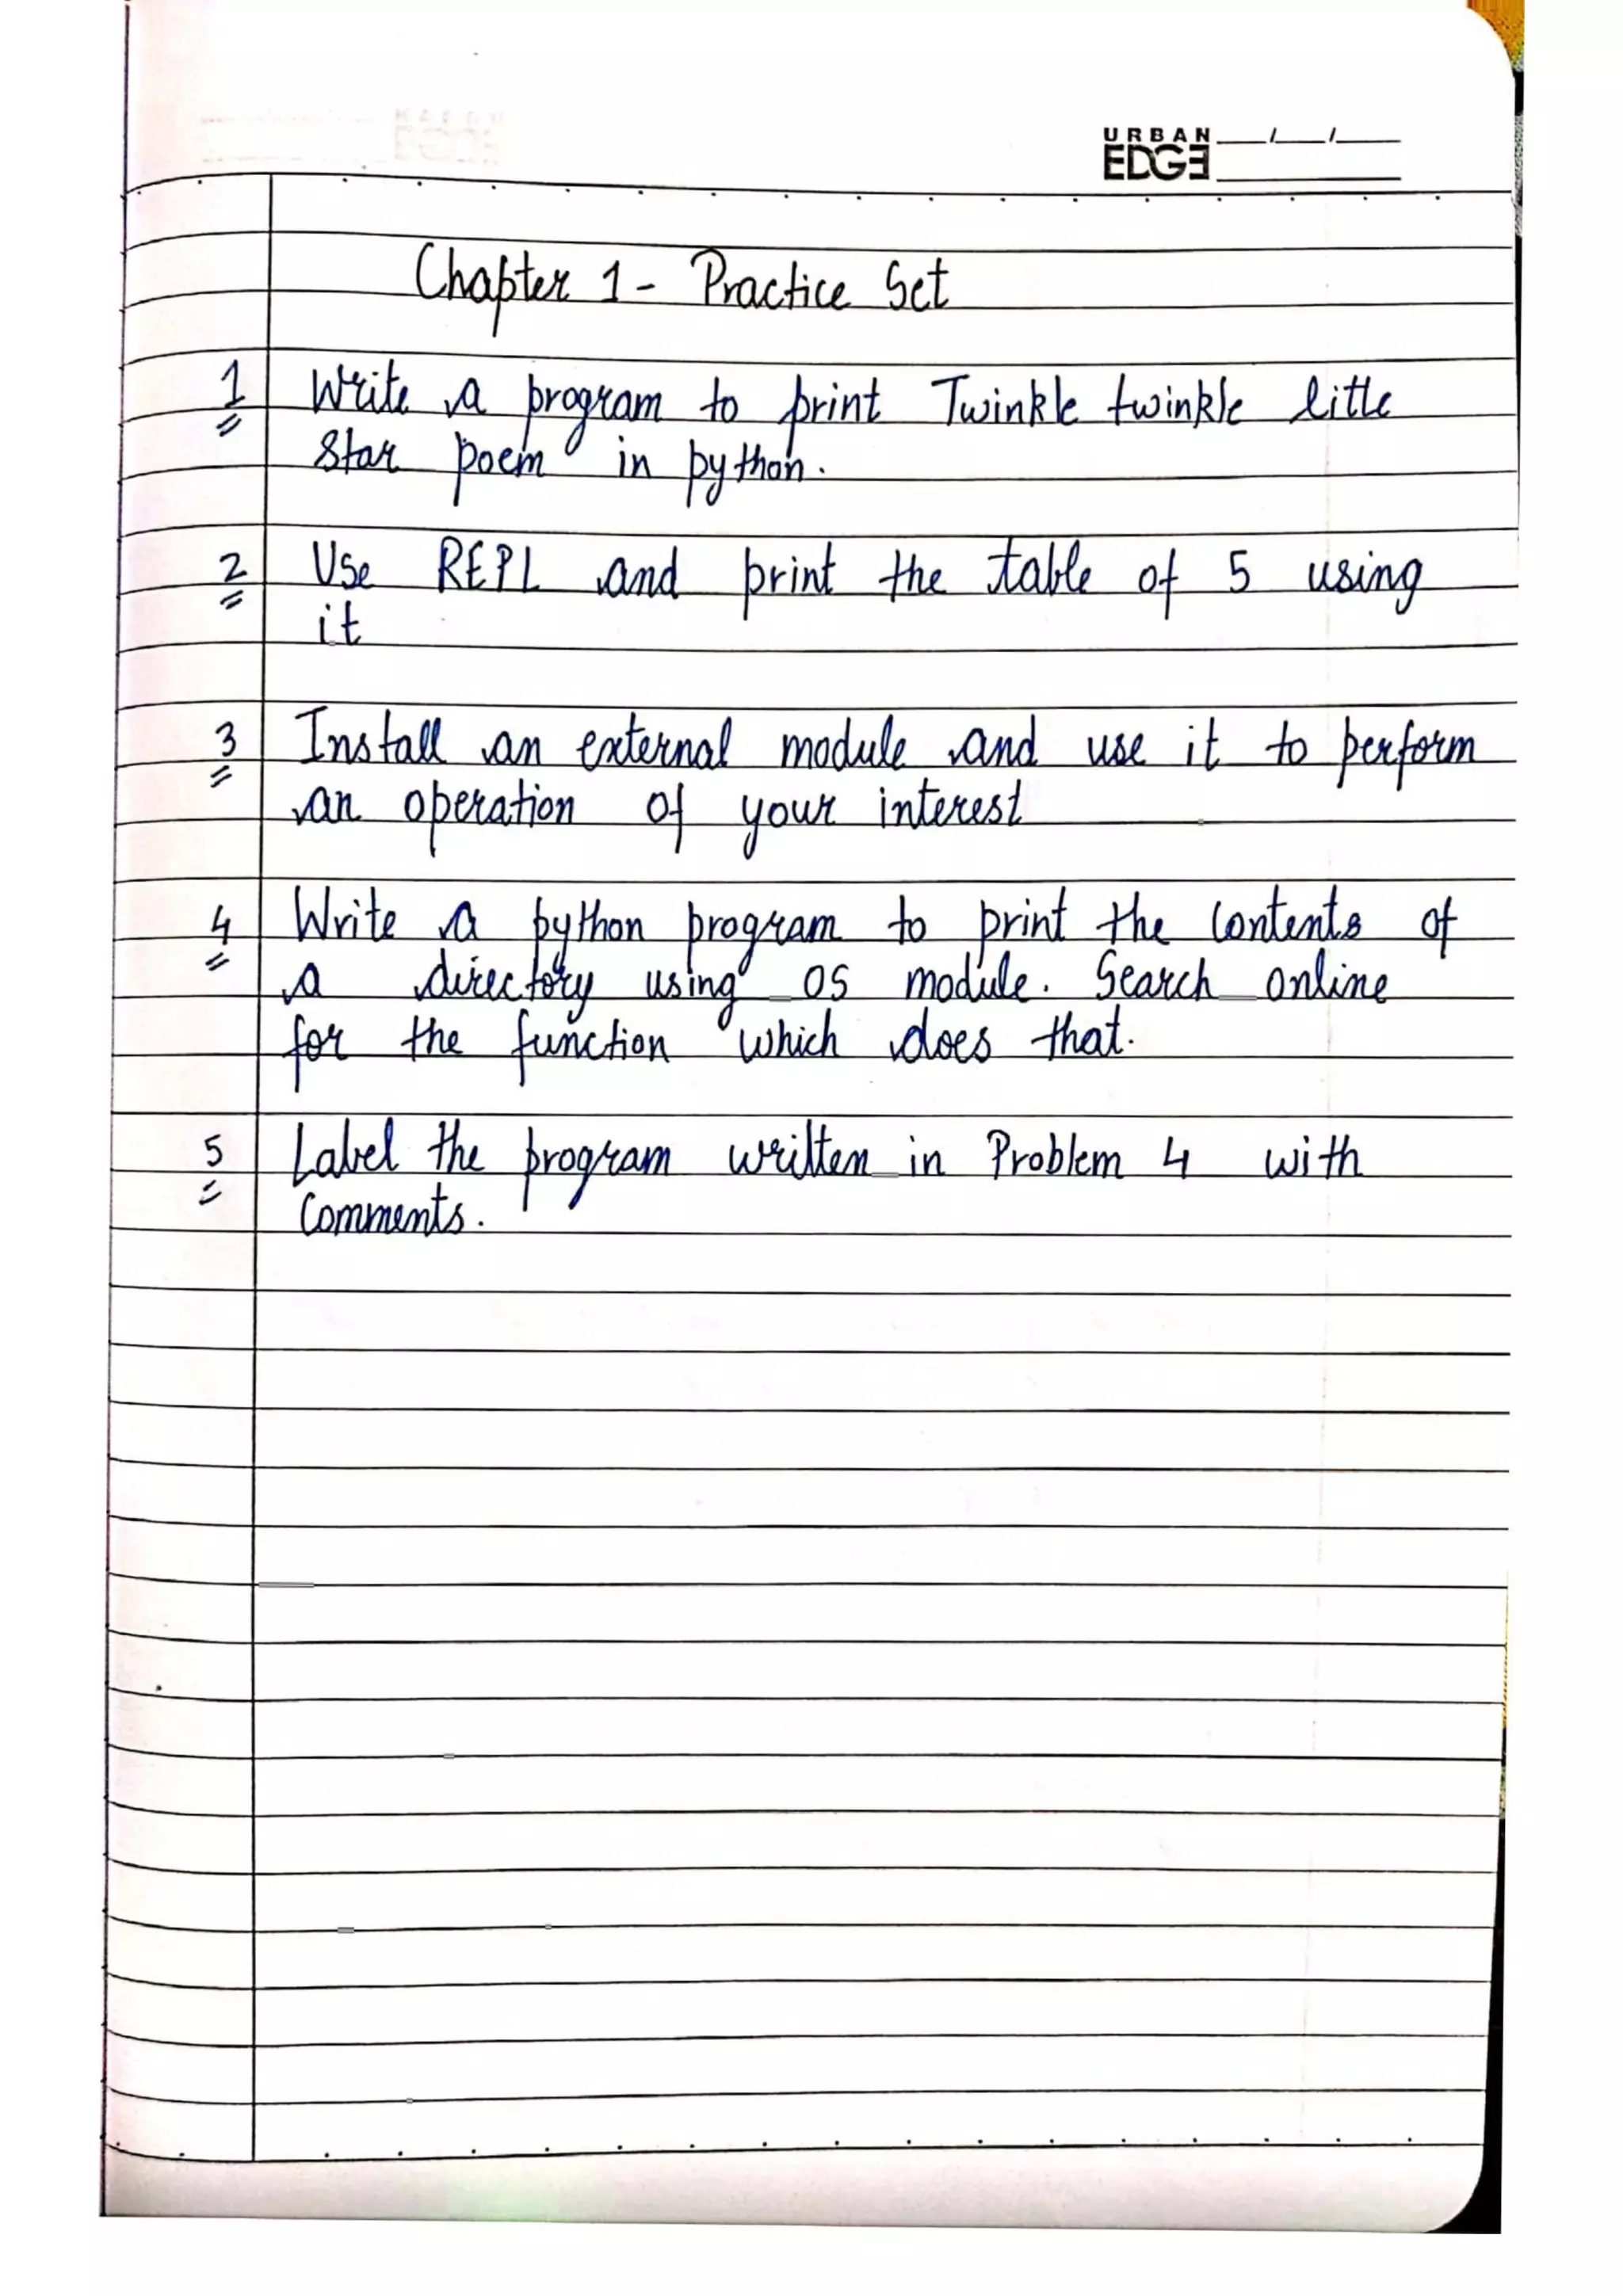 URBAN
EDGE
Chapter 1 - Practice Set
1 Write a program to print Twinkle twinkle little
star poem in python.
2 Use REPL and print the table of 5 using
it
3 Install an external module and use it to perform
an operation of your interest
4 Write a python program to print the contents of
a directory using os module. Search online
for the function which does that.
5 Label the program written in Problem 4 with
Comments.